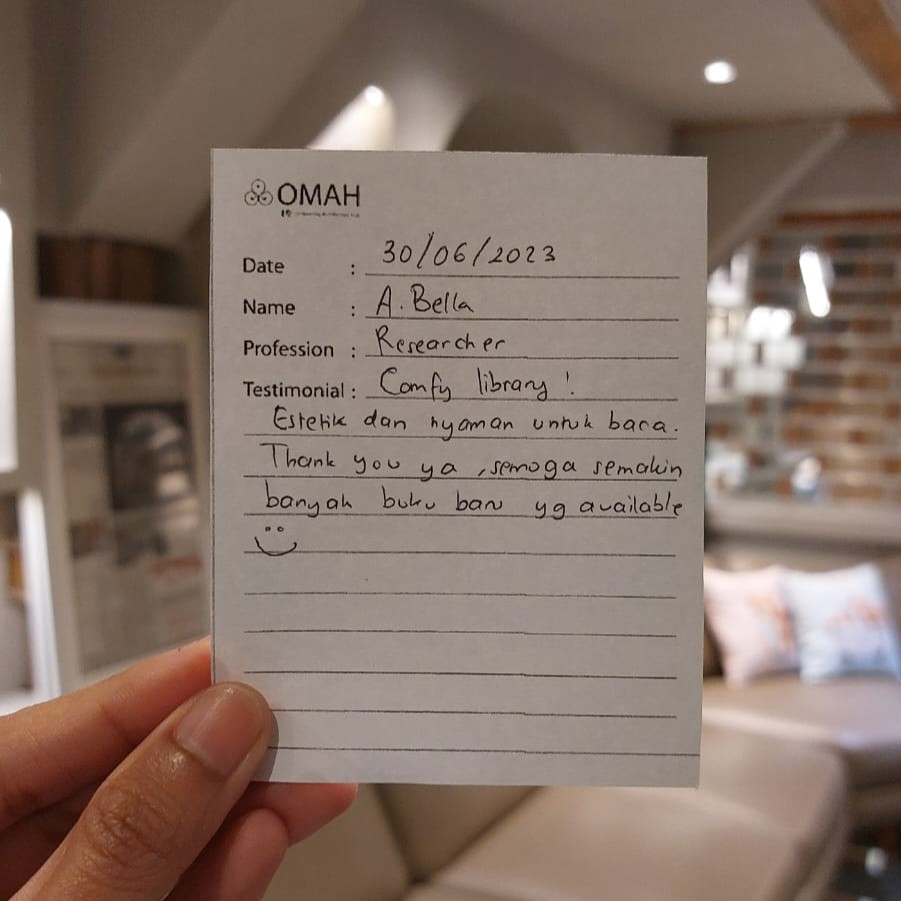 OMAH
Date : 30/06/2023
Name : A. Bella
Profession : Researcher
Testimonial : Comfy library!
Estetik dan nyaman untuk baca.
Thank you ya, semoga semakin
banyak buku baru yg available